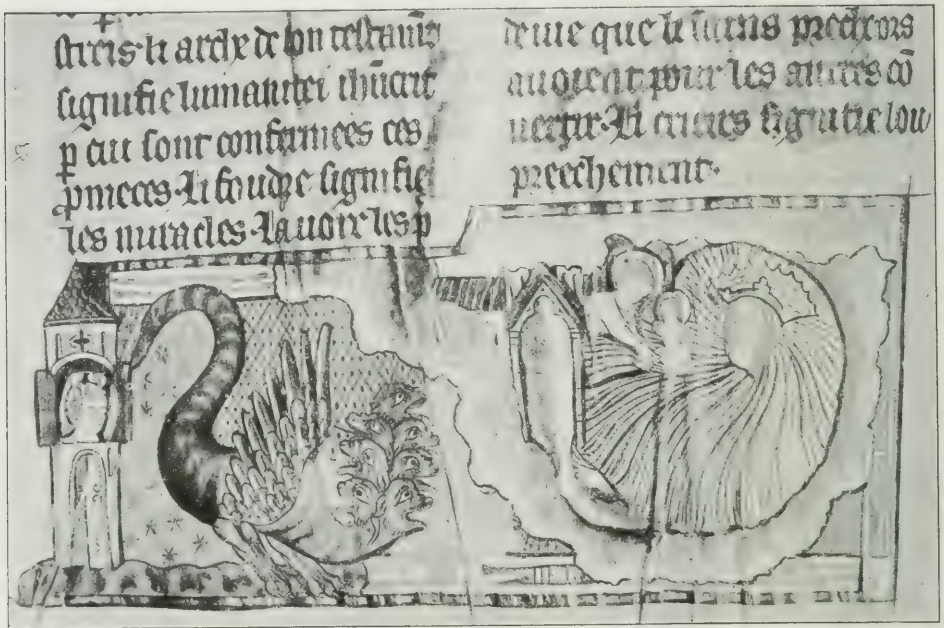 streis · li arche de son testamt
signifie lumanitei ihucrit
p cui sont confermees ces
pmeces · Li foudre signifie
les miracles · La uoix les p
deuie que li
auoient pour les autres cō
uertir · Li signifie lou
preechement ·